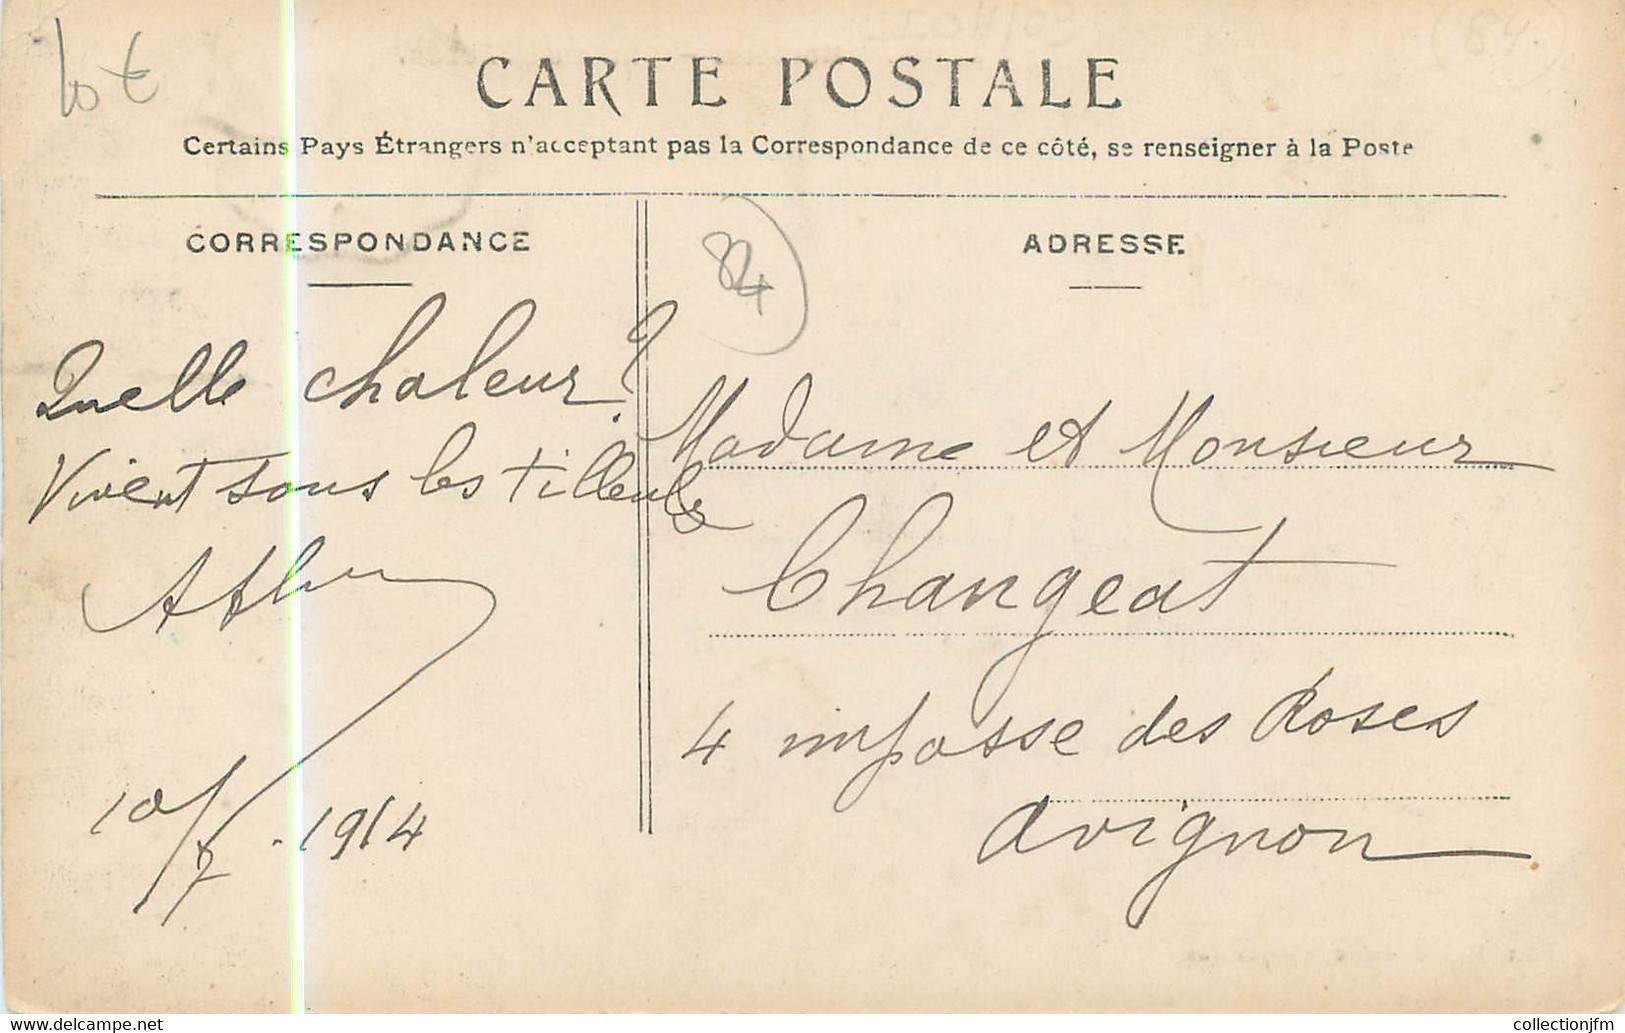 10 €
(84)
CARTE POSTALE
Certains Pays Étrangers n'acceptant pas la Correspondance de ce côté, se renseigner à la Poste
CORRESPONDANCE
Quelle chaleur ?
Vivent sous les tilleuls
10/7.1914
ADRESSE
84
Madame et Monsieur
Changeat
4 impasse des Roses
Avignon
Delcampe.net
collectionjfm